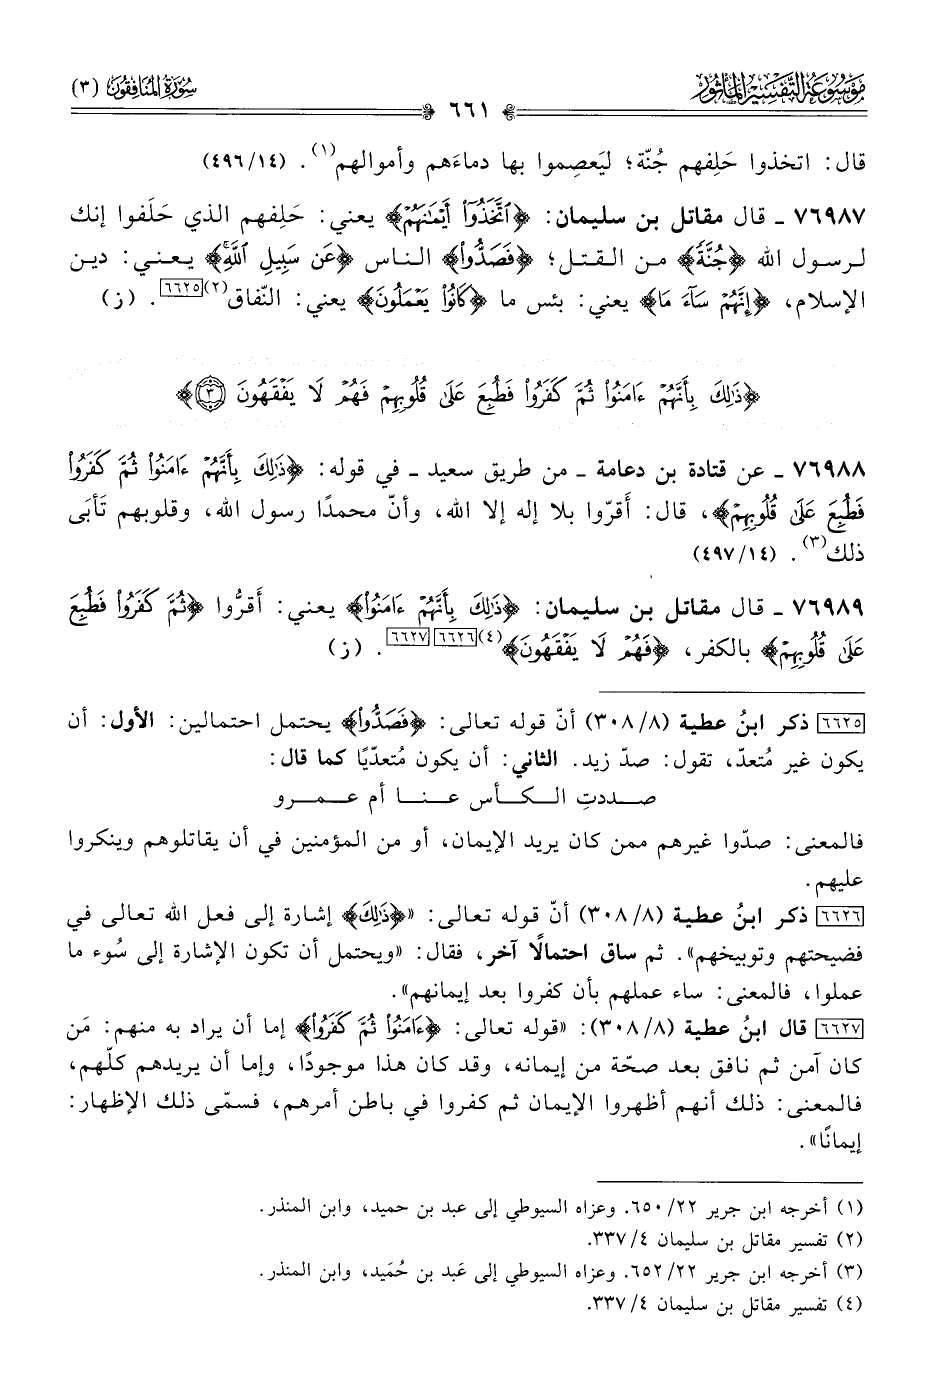 مَوْسُوعَةُ التَّفْسِيرِ المَأْثُورِ
سُورَةُ المُنَافِقُونَ (٣)
٦٦١
قال: اتخذوا حَلِفهم جُنّة؛ ليَعصِموا بها دماءَهم وأموالهم(١). (١٤/٤٩٦)
٧٦٩٨٧ ـ قال مقاتل بن سليمان: ﴿ٱتَّخَذُوٓا۟ أَيْمَـٰنَهُمْ﴾ يعني: حَلِفهم الذي حَلَفوا إنك
لرسول الله ﴿جُنَّةً﴾ من القتل؛ ﴿فَصَدُّوا۟﴾ الناس ﴿عَن سَبِيلِ ٱللَّهِ﴾ يعني: دين
الإسلام، ﴿إِنَّهُمْ سَآءَ مَا﴾ يعني: بئس ما ﴿كَانُوا۟ يَعْمَلُونَ﴾ يعني: النّفاق(٢)[٦٦٢٥]. (ز)
﴿ذَٰلِكَ بِأَنَّهُمْ ءَامَنُوا۟ ثُمَّ كَفَرُوا۟ فَطُبِعَ عَلَىٰ قُلُوبِهِمْ فَهُمْ لَا يَفْقَهُونَ ٣﴾
٧٦٩٨٨ ـ عن قتادة بن دعامة ـ من طريق سعيد ـ في قوله: ﴿ذَٰلِكَ بِأَنَّهُمْ ءَامَنُوا۟ ثُمَّ كَفَرُوا۟
فَطُبِعَ عَلَىٰ قُلُوبِهِمْ﴾، قال: أَقرّوا بلا إله إلا الله، وأنّ محمدًا رسول الله، وقلوبهم تَأبَى
ذلك(٣). (١٤/٤٩٧)
٧٦٩٨٩ ـ قال مقاتل بن سليمان: ﴿ذَٰلِكَ بِأَنَّهُمْ ءَامَنُوا۟﴾ يعني: أَقرُّوا ﴿ثُمَّ كَفَرُوا۟ فَطُبِعَ
عَلَىٰ قُلُوبِهِمْ﴾ بالكفر، ﴿فَهُمْ لَا يَفْقَهُونَ﴾(٤)[٦٦٢٦][٦٦٢٧]. (ز)
[٦٦٢٥] ذكر ابنُ عطية (٨/٣٠٨) أنّ قوله تعالى: ﴿فَصَدُّوا۟﴾ يحتمل احتمالين: الأول: أن
يكون غير مُتعدّ، تقول: صدّ زيد. الثاني: أن يكون مُتعدّيًا كما قال:
صددتِ الكأس عنا أم عمرو
فالمعنى: صدّوا غيرهم ممن كان يريد الإيمان، أو من المؤمنين في أن يقاتلوهم وينكروا
عليهم.
[٦٦٢٦] ذكر ابنُ عطية (٨/٣٠٨) أنّ قوله تعالى: «﴿ذَٰلِكَ﴾ إشارة إلى فعل الله تعالى في
فضيحتهم وتوبيخهم». ثم ساق احتمالًا آخر، فقال: «ويحتمل أن تكون الإشارة إلى سُوء ما
عملوا، فالمعنى: ساء عملهم بأن كفروا بعد إيمانهم».
[٦٦٢٧] قال ابنُ عطية (٨/٣٠٨): «قوله تعالى: ﴿ءَامَنُوا۟ ثُمَّ كَفَرُوا۟﴾ إما أن يراد به منهم: مَن
كان آمن ثم نافق بعد صحّة من إيمانه، وقد كان هذا موجودًا، وإما أن يريدهم كلّهم،
فالمعنى: ذلك أنهم أظهروا الإيمان ثم كفروا في باطن أمرهم، فسمّى ذلك الإظهار:
إيمانًا».
(١) أخرجه ابن جرير ٢٢/٦٥٠. وعزاه السيوطي إلى عبد بن حميد، وابن المنذر.
(٢) تفسير مقاتل بن سليمان ٤/٣٣٧.
(٣) أخرجه ابن جرير ٢٢/٦٥٢. وعزاه السيوطي إلى عَبد بن حُمَيد، وابن المنذر.
(٤) تفسير مقاتل بن سليمان ٤/٣٣٧.